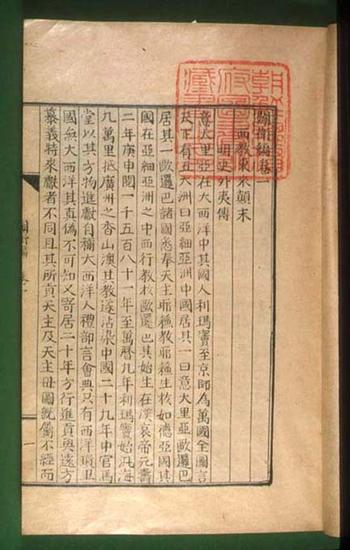 闢衛編卷一
西教東來顚末
明史外夷傳
意大里亞在大西洋中其國人利瑪竇至京師為萬國全圖言
天下有五大洲曰亞細亞洲中國居其一曰意大里亞歐邏巴
居其一歐邏巴諸國悉奉天主耶穌教耶穌生於如德亞國其
國在亞細亞洲之中西行教於歐邏巴其始生在漢哀帝元壽
二年庚申閱一千五百八十一年至萬曆九年利瑪竇始汎海
九萬里抵廣州之香山澳其教遂沾染中國二十九年中官馬
堂以其方物進獻自稱大西洋人禮部言會典只有西洋瑣里
國無大西洋其真偽不可知又寄居二十年方行進貢與遠方
慕義特來獻者不同且其所貢天主及天主母圖旣屬不經而